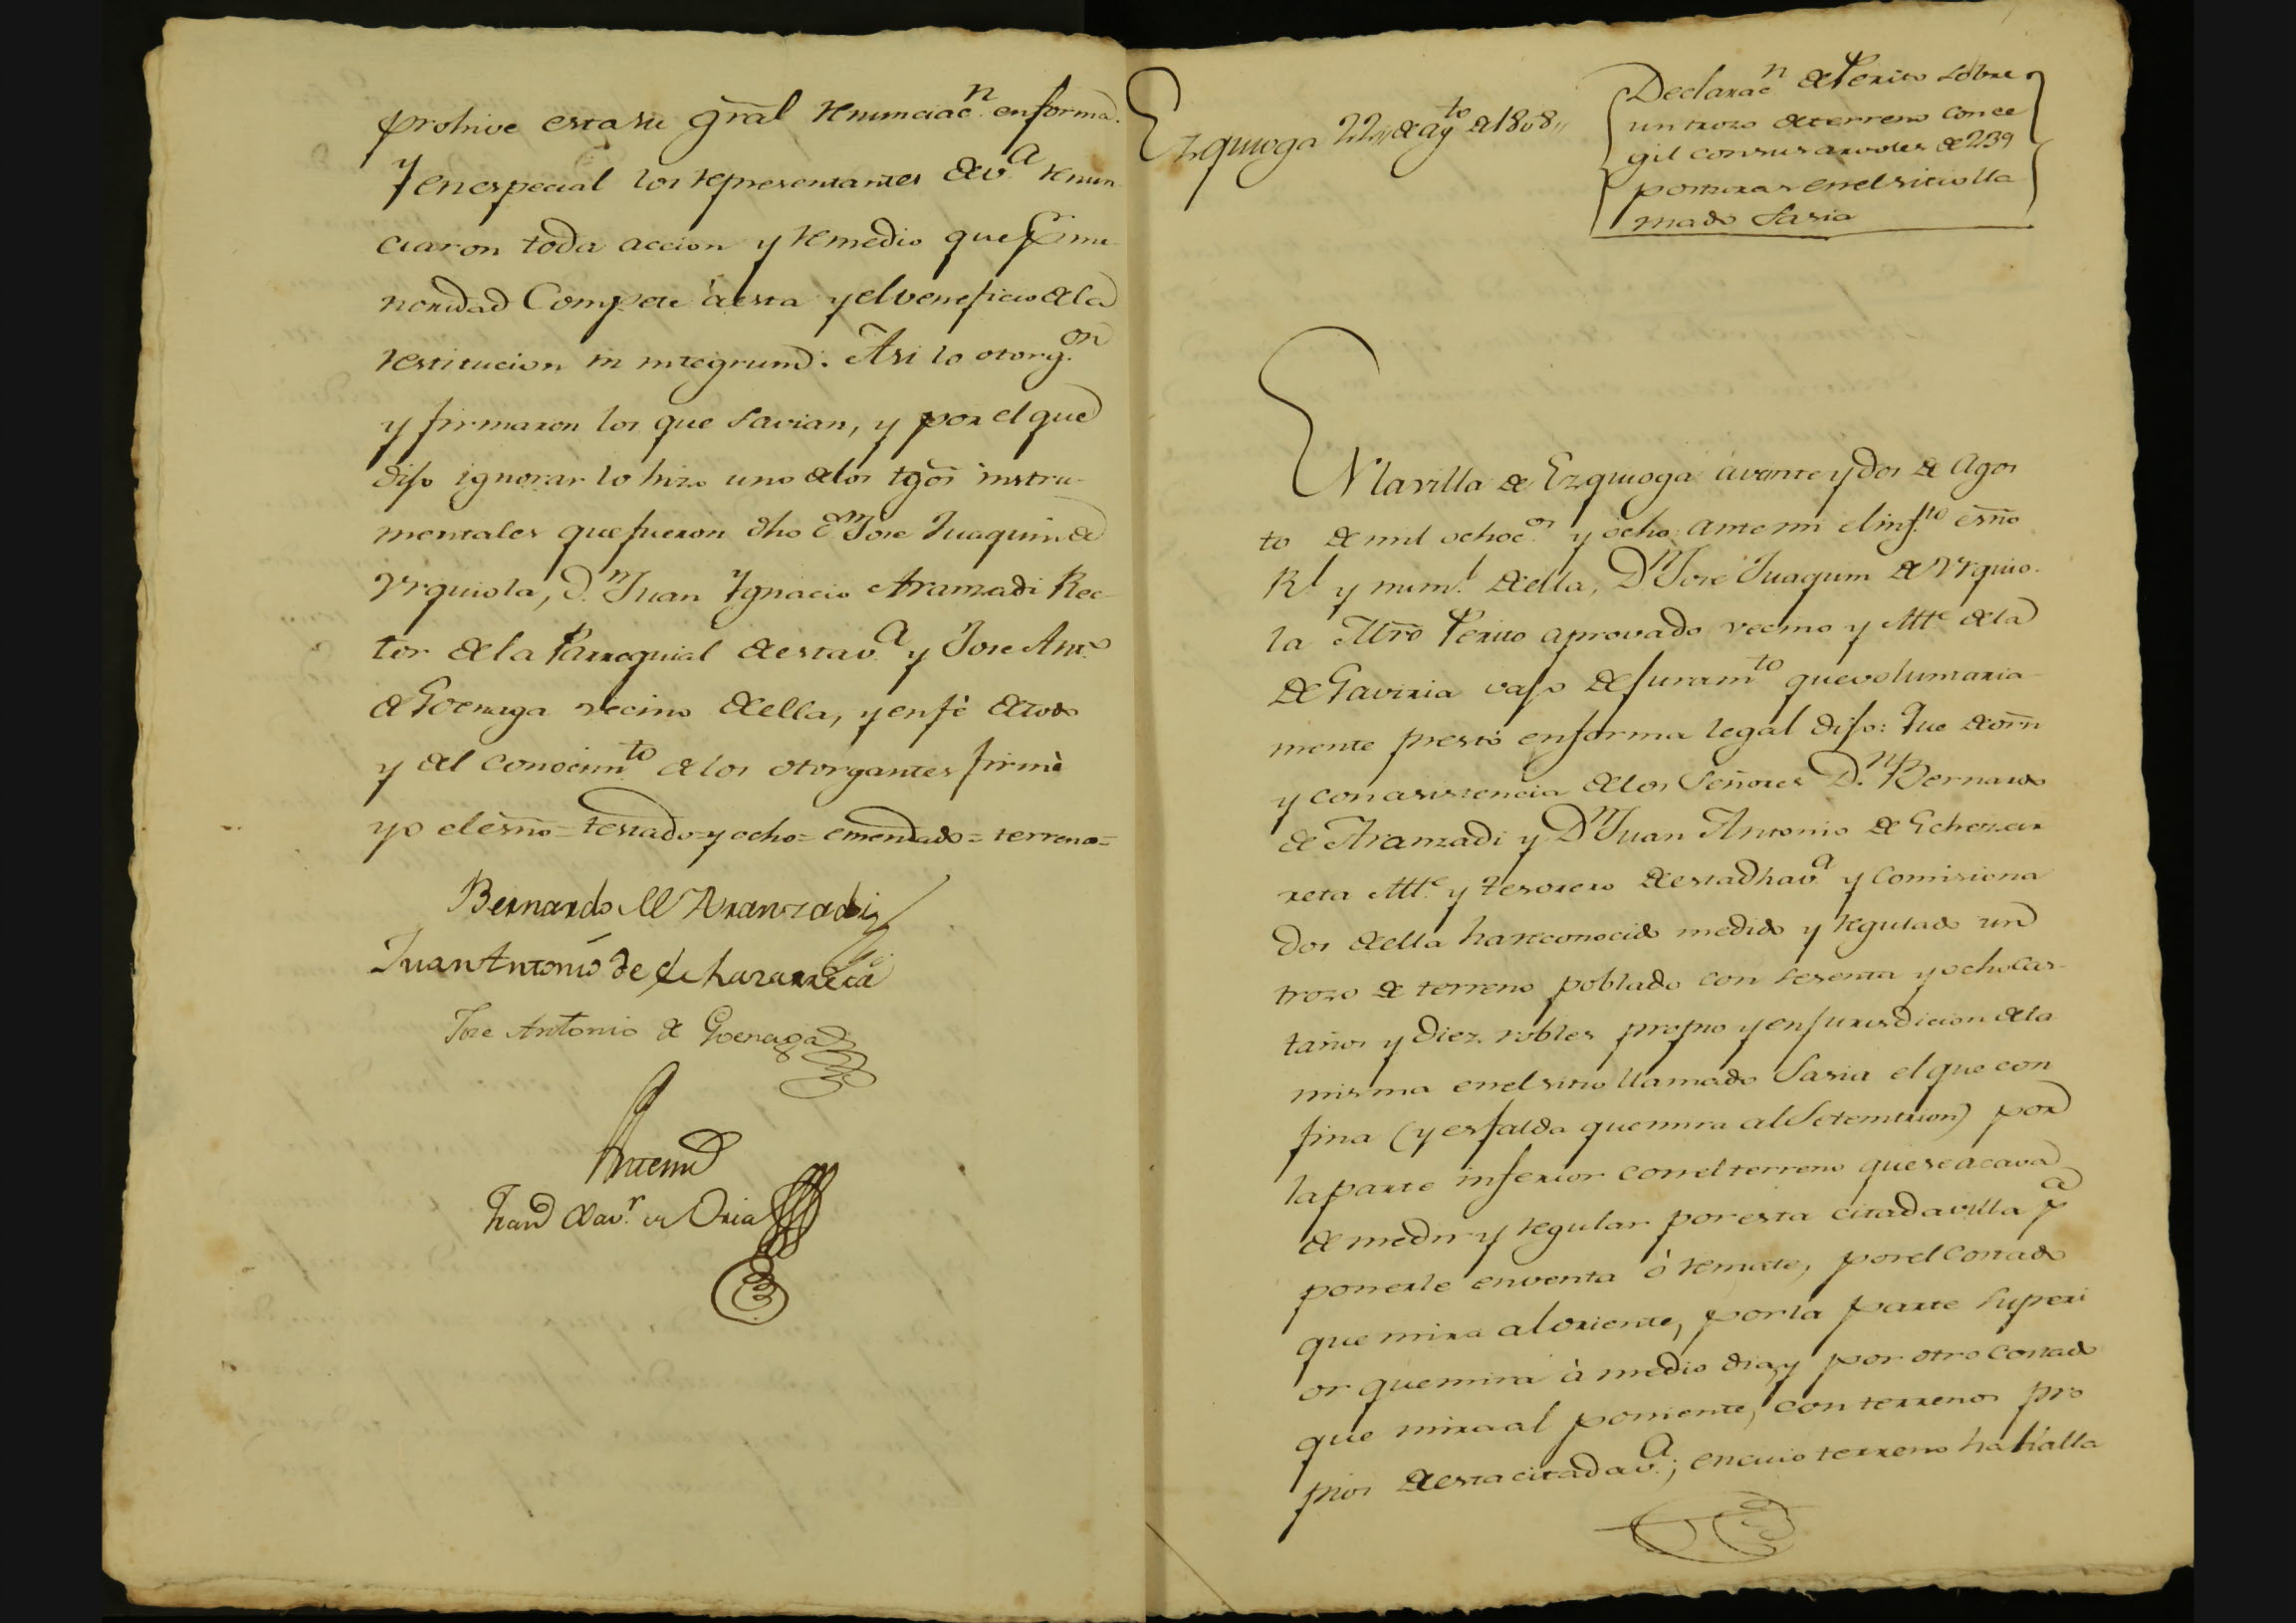 prohive esta su gral renunciac.n en forma.
Y en especial los representantes de v.a renun
ciaron toda accion y remedio que p.r mi
noridad Compete à esta y el veneficio de la
restitucion in integrum. Asi lo otorg.on
y firmaron los que savian, y por el que
dijo ignorar lo hizo uno de los tgos instru-
mentales que fueron dho D.n Jose Juaquin de
Vrquiola, D.n Juan Ygnacio Aranzadi Rec-
tor de la Parroquial de esta v.a y Jose Ant.o
de Goenaga vecino de ella, y en fè de todo
y del conocim.to de los otorgantes firmè
yo el esno = testado = y ocho = emendado = terreno =
Bernardo M Aranzadi
Juan Antonio de Echazarreta
Jose Antonio de Goenaga
Ante mi
Fran.co Xav.r de Oria
Ezquioga 22,, de ag.to de 1808,,
Declarac.n de Perito sobre
un trozo de terreno conce
gil con sus arvoles de 239
posturas en el sitio lla
mado Sasia
EN la villa de Ezquioga à veinte y dos de Agos
to de mil ochoc.os y ocho ante mi el inf.to esno
R.l y num.l de ella, D.n Jose Juaquin de Vrquio-
la Mro Perito aprovado vecino y Alt.e de la
de Gaviria vajo de juram.to que voluntaria
mente prestó en forma legal dijo: Que de orn
y con asistencia de los Señores D.n Bernardo
de Aranzadi y D.n Juan Antonio de Echezar
reta Alt.e y tesorero de esta dha v.a y comisiona
dos de ella ha reconocido medido y regulado un
trozo de terreno poblado con sesenta y ocho cas-
taños y diez robles propio y en jurisdicion de la
misma en el sitio llamado Sasia el que con
fina (y es falda que mira al Setemtrion) por
la parte inferior con el terreno que se acava
de medir y regular por esta citada villa p.a
ponerle en venta ò remate, por el costado
que mira al oriente, por la parte superi
or que mira à medio dia, y por otro costado
que mira al poniente, con terrenos pro
pios de esta citada v.a; en cuio terreno ha halla